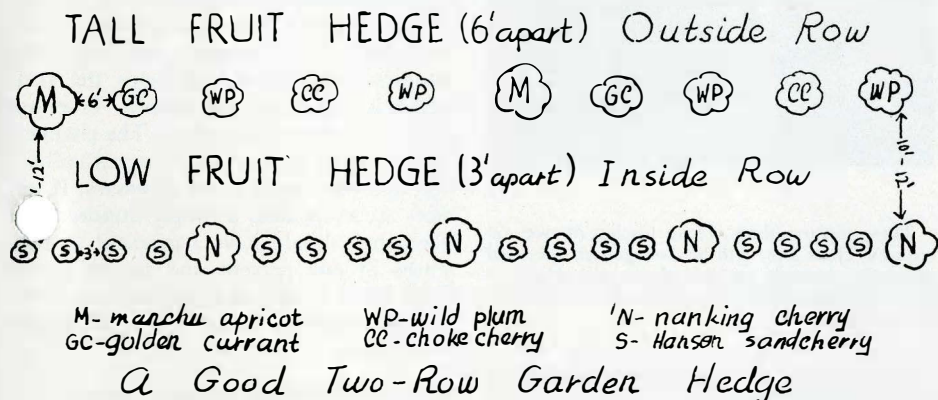 TALL FRUIT HEDGE (6' apart) Outside Row
M 6' GC WP CC WP M GC WP CC WP
-12' 10'-12'
LOW FRUIT HEDGE (3' apart) Inside Row
S S 3' S S N S S S S N S S S S N S S S S N
M- manchu apricot WP-wild plum 'N- nanking cherry
GC-golden currant CC-choke cherry S- Hansen sandcherry
A Good Two-Row Garden Hedge